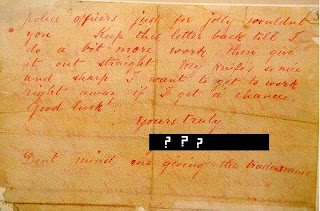 police officers just for jolly wouldnt
you Keep this letter back till I
do a bit more work then give
it out straight My knife's so nice
and sharp I want to get to work
right away if I get a chance.
Good luck!
Yours truly
? ? ?
Dont mind me giving the trade name